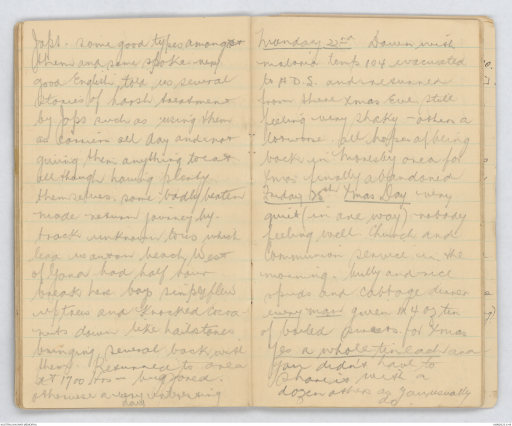 Japs. Some good types amongst
them and some spoke very
good English told us several
stories of harsh treatment
by Japs such as using them
as carriers all day and not
giving them anything to eat
although having plenty
themselves. some badly beaten
made return journey by
track unknown to us which
lead us onto beach West
of Gona had half hour
break here boys simply flew
up trees and knocked cocoa-
nuts down like hailstones
bringing several back with
them. Returned to area
at 1700 hrs - buggered.
otherwise a very interesting
day
Monday 22nd Down with
malaria temp 104 evacuated
to A.D.S. and returned
from there Xmas Eve still
feeling very shaky - often a
all hopes of being
back in Moresby area for
Xmas finally abandoned
Friday 25th Xmas Day - very
quiet (in one way) - nobody
feeling well Church and
communion service in the
morning - bully and rice
spuds and cabbage dinner
every man given 14 oz tin
of boiled for Xmas
Yes a whole tin each and
you didn't have to
share it with a
dozen others as you usually
do